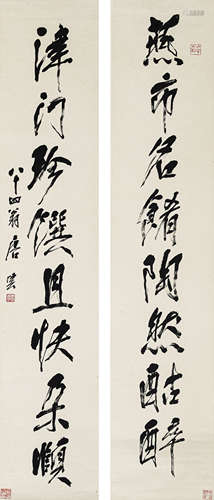 燕市名餚陶然酤醉
津门珍馔且快朵颐
八十四翁唐云